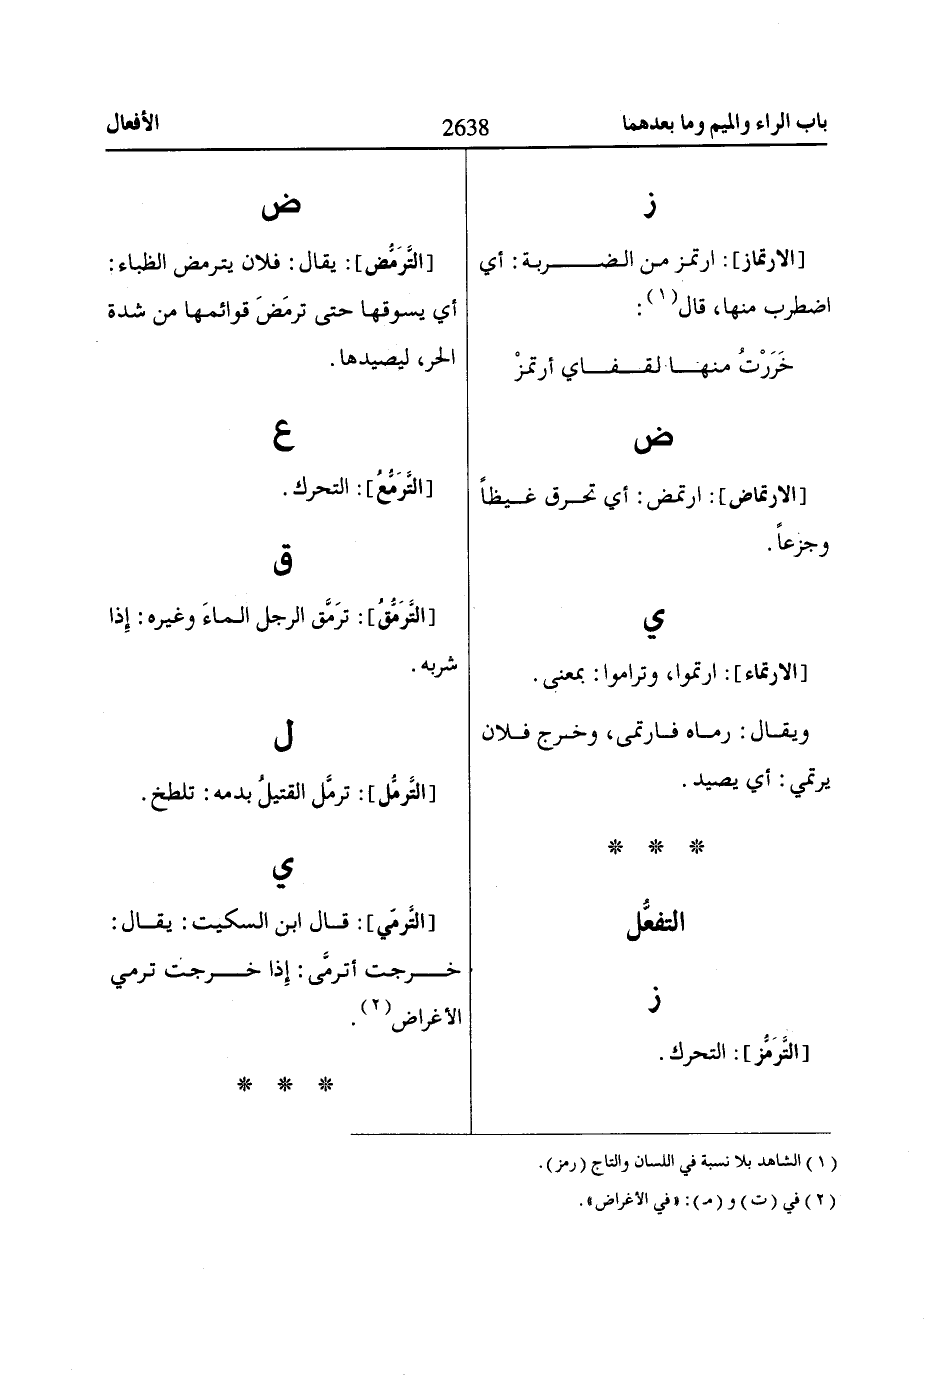 باب الراء والميم وما بعدهما
2638
الأفعال
ز
[الارتماز]: ارتمز من الضربة: أي
اضطرب منها، قال(١):
خَرَرْتُ منها لقفاي أرتمزْ
ض
[الارتماض]: ارتمض: أي تحرق غيظاً
وجزعاً.
ي
[الارتماء]: ارتموا، وتراموا: بمعنى.
ويقال: رماه فارتمى، وخرج فلان
يرتمي: أي يصيد.
* * *
التفعُّل
ز
[التَّرَمُّز]: التحرك.
ض
[التَّرَمُّض]: يقال: فلان يترمض الظباء:
أي يسوقها حتى ترمَضَ قوائمها من شدة
الحر، ليصيدها.
ع
[التَّرَمُّعُ]: التحرك.
ق
[التَّرَمُّقُ]: ترَمَّق الرجل الماءَ وغيره: إِذا
شربه.
ل
[التَّرمُّل]: ترمَّل القتيلُ بدمه: تلطخ.
ي
[التَّرمّي]: قال ابن السكيت: يقال:
خرجت أترمَّى: إِذا خرجت ترمي
الأغراض(٢).
* * *
(١) الشاهد بلا نسبة في اللسان والتاج (رمز).
(٢) في (ت) و (م‍): «في الأغراض».